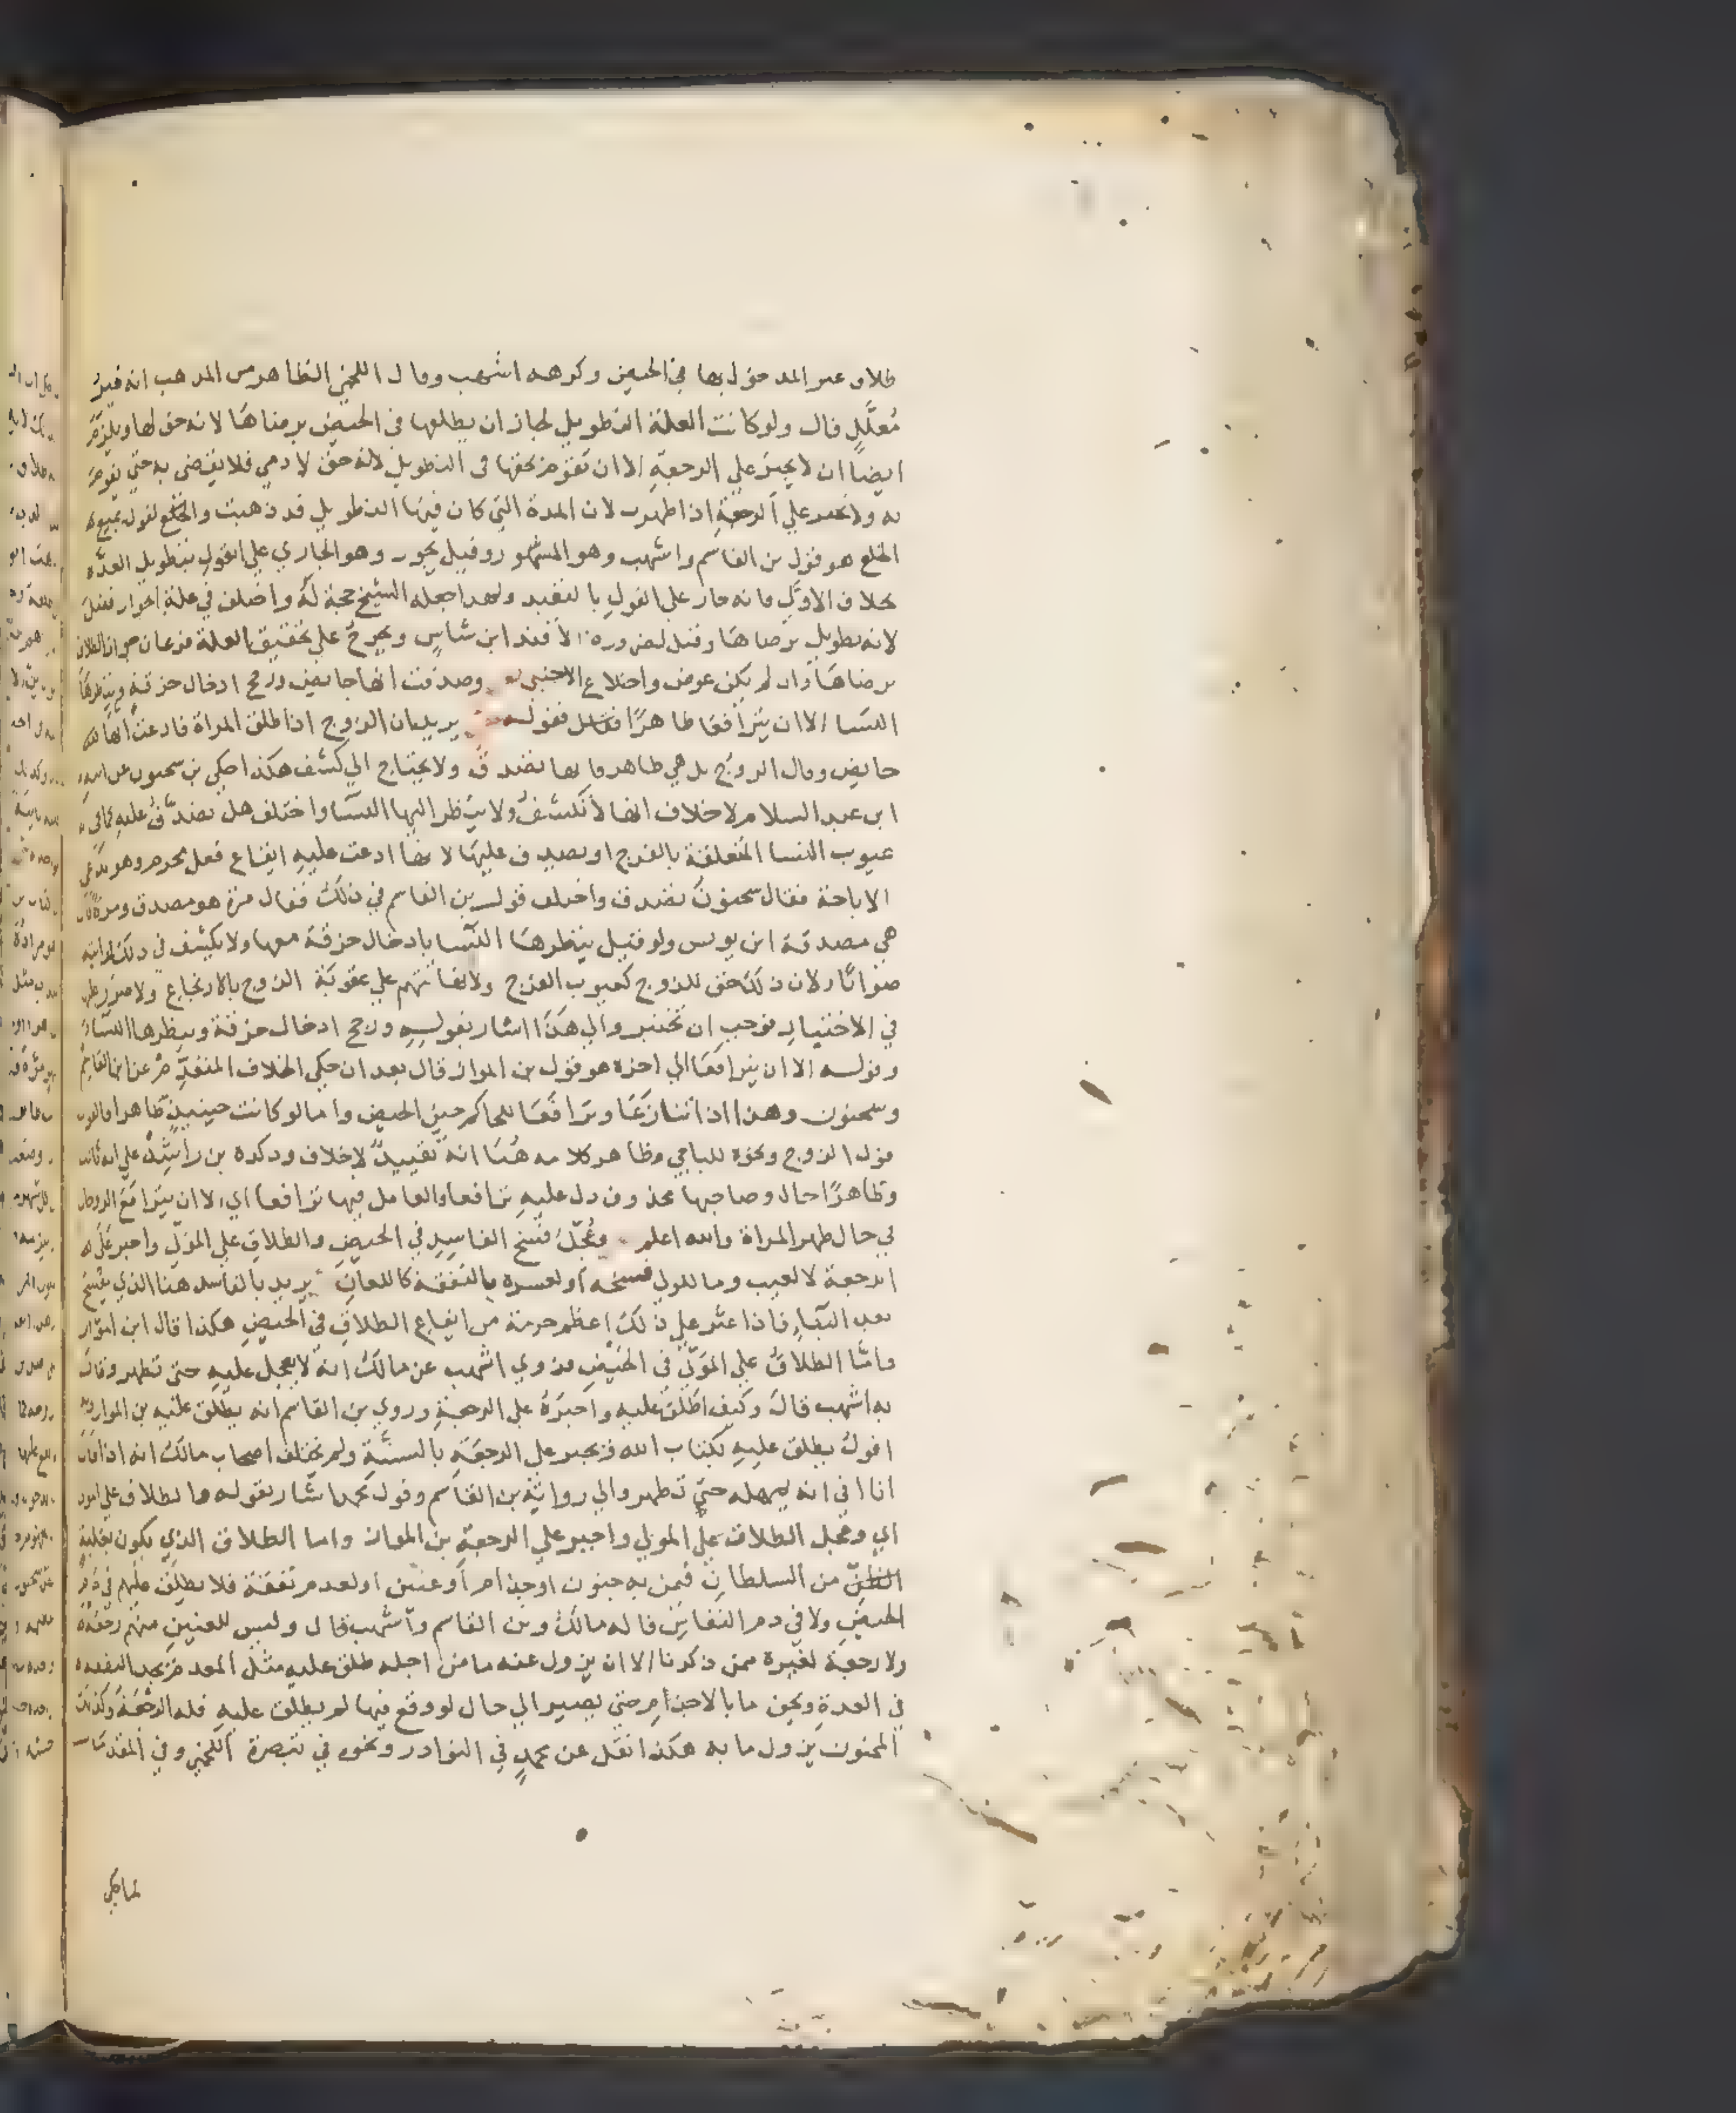 طلاق غير المدخول بها في الحيض وكرهه اشهب وقال اللخمي الظاهر من المذهب انه غير
مُعلّل قال ولو كانت العلة التطويل لجاز ان يطلقها في الحيض برضاها لانه حق لها ويلزم
ايضاً ان لا يجبر علي الرجعة الا ان تقوم بحقها في التطويل لانه حق لادمي فلا يقضى به حتي يقوم
به ولا يجبر علي الرجعة اذا طهرت لان المدة التي كان فيها التطويل قد ذهبت والخلع
الخلع هو قول بن القاسم واشهب وهو المشهور وقيل يجوز وهو الجاري علي القول بتطويل العدة
بخلاف الاول فانه جار علي القول بالتعبد ولهذا جعله الشيخ حجة له واختلف في علة الجواز فقيل
لانه تطويل برضاها وقيل لضرورة الافتدا ابن شاس ويخرج علي تحقيق العلة فرعان جواز الطلاق
برضاها وان لم يكن عوض واختلاع الاجنبي وصدقت انها حايض ورجح ادخال خرقة وينظرها
النسا الا ان يترافعا طاهرًا فقوله يريد ان الزوج اذا طلق المراة فادعت انها
حايض وقال الزوج بل هي طاهر فانها تصدق ولا يحتاج الي كشف هكذا حكي بن سحنون عن ابيه
ابن عبد السلام لا خلاف انها لا تكشف ولا ينظر اليها النسا واختلف هل تصدق عليه كما في
عيوب النسا المتعلقة بالفرج او يصدق عليها لانها ادعت عليه ايقاع فعل محرم وهو يدعي
الاباحة فقال سحنون تصدق واختلف قول بن القاسم في ذلك فقال مرة هو مصدق ومرة قال
هي مصدقة ابن يونس ولو قيل ينظرها النسا بادخال خرقة معها ولا يكشف في ذلك لرايته
صوابًا ولان ذلك حق للزوج كعيوب الفرج ولانها تتهم علي عقوبة الزوج بالارتجاع ولا ضرر عليها
في الاختبار فوجب ان تختبر والي هذا اشار بقوله ورجح ادخال خرقة وينظرها النسا
وقوله الا ان يترافعا الي اخره هو قول بن المواز قال بعد ان حكي الخلاف المتقدم عن ابن القاسم
وسحنون وهذا اذا تنازعا وترافعا للحاكم حين الحيض واما لو كانت حينيذ طاهرا فالقول
قول الزوج ونحوه للباجي وظاهر كلامه هنا انه تقييد لا خلاف وذكره بن راشد علي انه ثالث
وظاهرًا حال وصاحبها محذوف دل عليه ترافعا والعامل فيها ترافعا اي الا ان يترافع الزوجان
في حال طهر المراة والله اعلم وعُجّل فسخ الفاسد في الحيض والطلاق علي المولي واجبر علي
الرجعة لا لعيب وما للولي فسخه او لعسره بالنفقة كاللعان يريد بالفاسد هنا الذي يفسخ
بعد البناء فاذا عثر علي ذلك اعظم حرمة من ايقاع الطلاق في الحيض هكذا قال ابن المواز
واما الطلاق علي المولي في الحيض فروي اشهب عن مالك انه لا يعجل عليه حتي تطهر وقال
به اشهب قال وكيف اطلق عليه واجبره علي الرجعة وروي بن القاسم انه يطلق عليه بن المواز وبه
اقول يطلق عليه بكتاب الله ويجبر علي الرجعة بالسنة ولم يختلف اصحاب مالك انه اذا قال
انا افي انه يمهله حتي تطهر والي رواية بن القاسم وقول محمد اشار بقوله والطلاق علي المولي
اي وعجل الطلاق علي المولي واجبر علي الرجعة بن المواز واما الطلاق الذي يكون
من السلطان فيمن به جنون او جذام او عنين او لعدم نفقة فلا يطلق عليهم في دم
الحيض ولا في دم النفاس قاله مالك وبن القاسم واشهب قال وليس للعنين منهم رجعة
ولا رجعة لغيره ممن ذكرنا الا ان يزول عنه ما من اجله طلق عليه مثل المعدم يجد النفقة
في العدة ويخف ما بالاجذم حتي يصير الي حال لو وقع فيها لم يطلق عليه فله الرجعة وكذلك
المجنون يزول ما به هكذا نقل عن محمد في النوادر ونحوه في تبصرة اللخمي وفي المقدمات